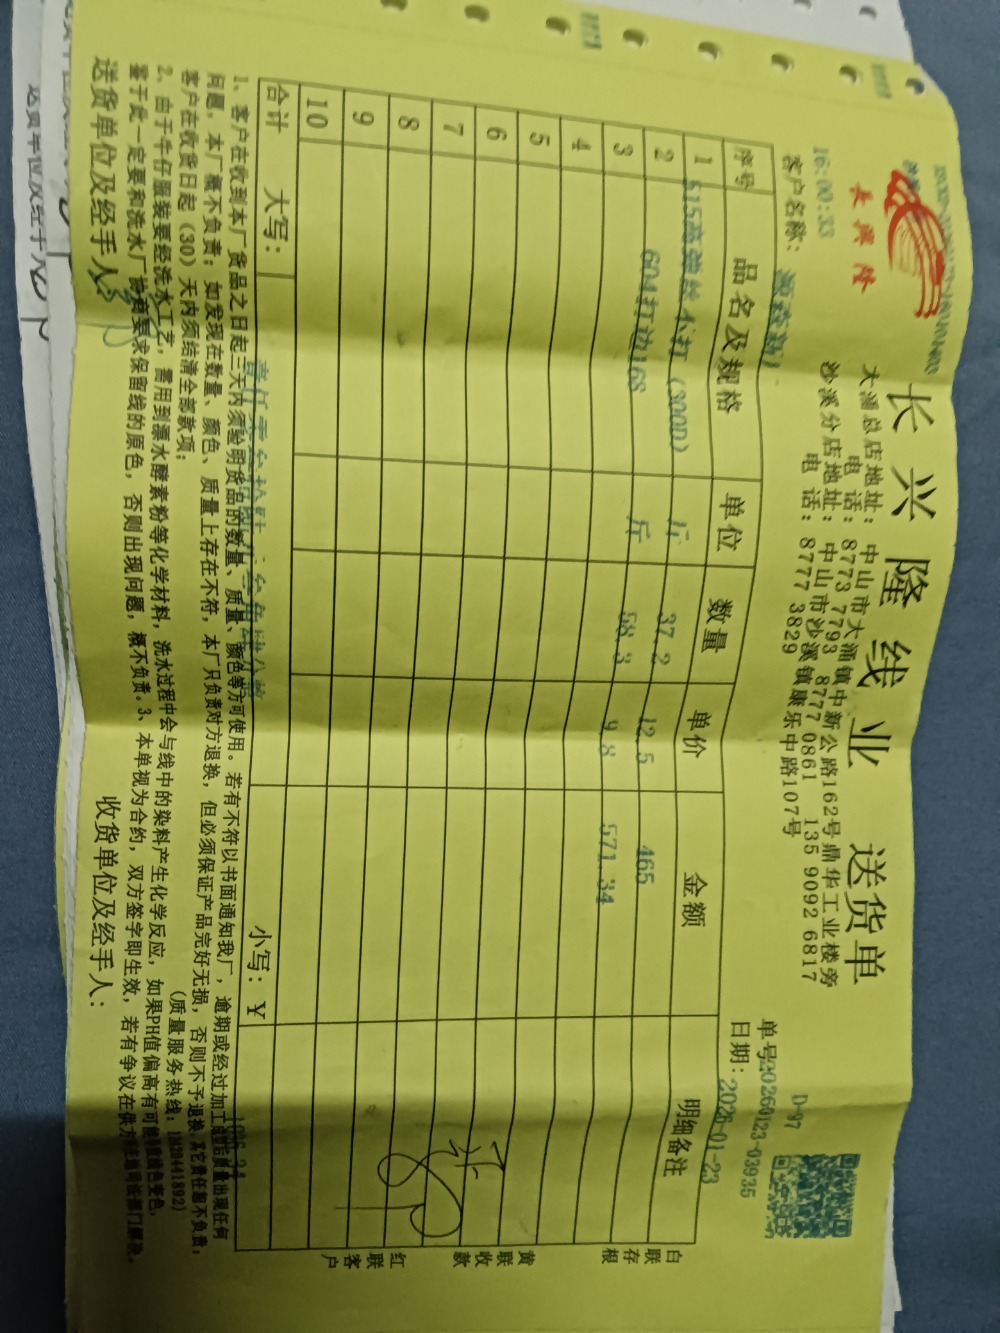 长兴隆线业 送货单
長興隆
大涌总店地址：中山市大涌镇中新公路162号鼎华工业楼旁
电话：8773 7793 8777 0861 135 9092 6817
沙溪分店地址：中山市沙溪镇康乐中路107号
电话：8777 3829
D-97
16:00:33
单号20260123-03935
客户名称：
日期：2026-01-23
序号 品名及规格 单位 数量 单价 金额 明细备注
1 515高弹丝小打（300D） 斤 37.2 12.5 465
2 604打边16S 斤 58.3 9.8 571.34
3
4
5
6
7
8
9
10
合计 大写： 小写：￥
白联存根
黄联收款
红联客户
1、客户在收到本厂货品之日起三天内须验明货品的数量、质量、颜色等方可使用。若有不符以书面通知我厂，逾期或经过加工成型后质量出现任何
问题，本厂概不负责；如发现在数量、颜色、质量上存在不符，本厂只负责对方退换，但必须保证产品完好无损，否则不予退换，其它责任超不负责；
客户在收货日起（30）天内须结清全部款项；
（质量服务热线：
2、由于牛仔服装要经洗水工艺，需用到漂水酵素粉等化学材料，洗水过程中会与线中的染料产生化学反应，如果PH值偏高有可能
鉴于此一定要和洗水厂协商要求保留线的原色，否则出现问题，概不负责。3、本单视为合约，双方签字即生效，若有争议在供方
送货单位及经手人： 收货单位及经手人：